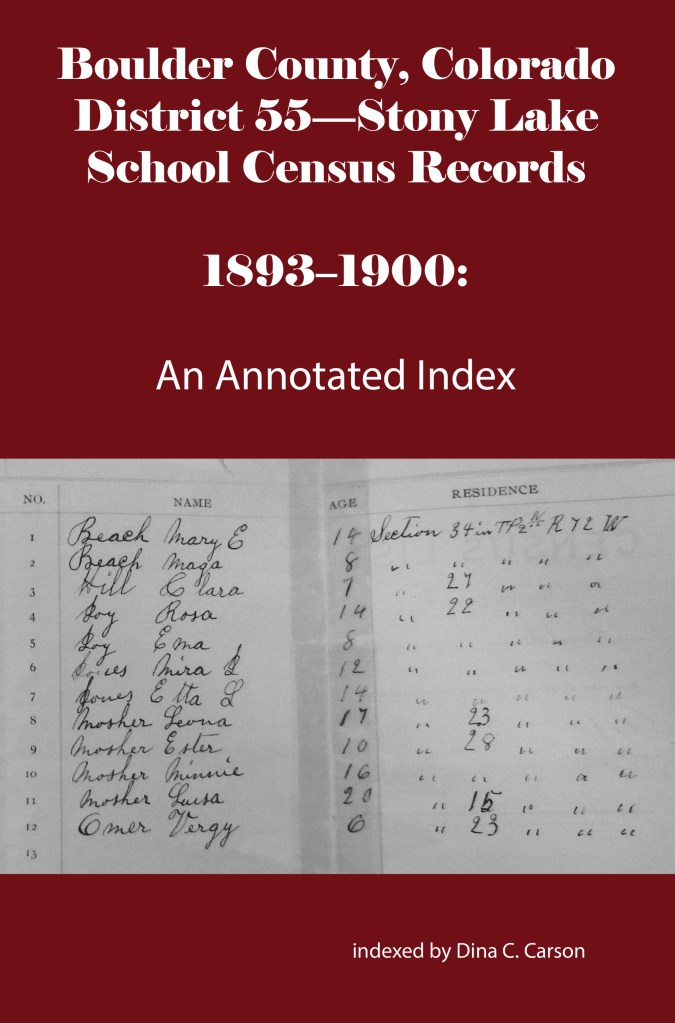 Boulder County, Colorado
District 55—Stony Lake
School Census Records
1893–1900:
An Annotated Index
NO. NAME AGE RESIDENCE
1 Beach Mary E 14 Section 34 in TP 2 N R 72 W
2 Beach Maga 8 " " " " "
3 Hill Clara 7 " 27 " " "
4 Joy Rosa 14 " 22 " " "
5 Joy Ema 8 " " " " "
6 Jones Mira L 12 " " " " "
7 Jones Etta L 14 " " " " "
8 Mosher Leona 17 " 23 " " "
9 Mosher Ester 10 " 28 " " "
10 Mosher Minnie 16 " " " " "
11 Mosher Luisa 20 " 15 " " "
12 Omer Vergy 6 " 23 " " "
13
indexed by Dina C. Carson